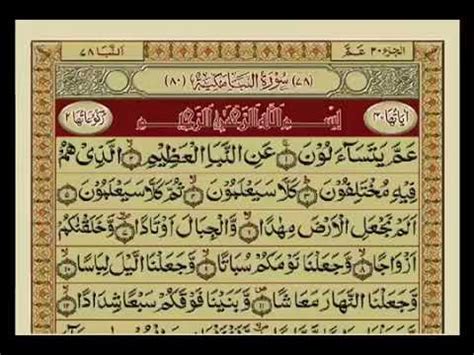 الجزء ٣٠ عَمَّ
النَّبَا ٧٨
(٧٨) سُوۡرَةُ النَّبَا مَكِّيَّةٌ (٨٠)
اٰيَاتُهَا ٤٠
بِسۡمِ اللّٰهِ الرَّحۡمٰنِ الرَّحِيۡمِ
رُكُوۡعَاتُهَا ٢
عَمَّ يَتَسَآءَلُوۡنَ ۝١ عَنِ النَّبَاِ الۡعَظِيۡمِ ۝٢ الَّذِىۡ هُمۡ
فِيۡهِ مُخۡتَلِفُوۡنَ ۝٣ كَلَّا سَيَعۡلَمُوۡنَ ۝٤ ثُمَّ كَلَّا سَيَعۡلَمُوۡنَ ۝٥
اَلَمۡ نَجۡعَلِ الۡاَرۡضَ مِهٰدًا ۝٦ وَّالۡجِبَالَ اَوۡتَادًا ۝٧ وَّخَلَقۡنٰكُمۡ
اَزۡوَاجًا ۝٨ وَّجَعَلۡنَا نَوۡمَكُمۡ سُبَاتًا ۝٩ وَّجَعَلۡنَا الَّيۡلَ لِبَاسًا ۝١٠
وَّجَعَلۡنَا النَّهَارَ مَعَاشًا ۝١١ وَّبَنَيۡنَا فَوۡقَكُمۡ سَبۡعًا شِدَادًا ۝١٢